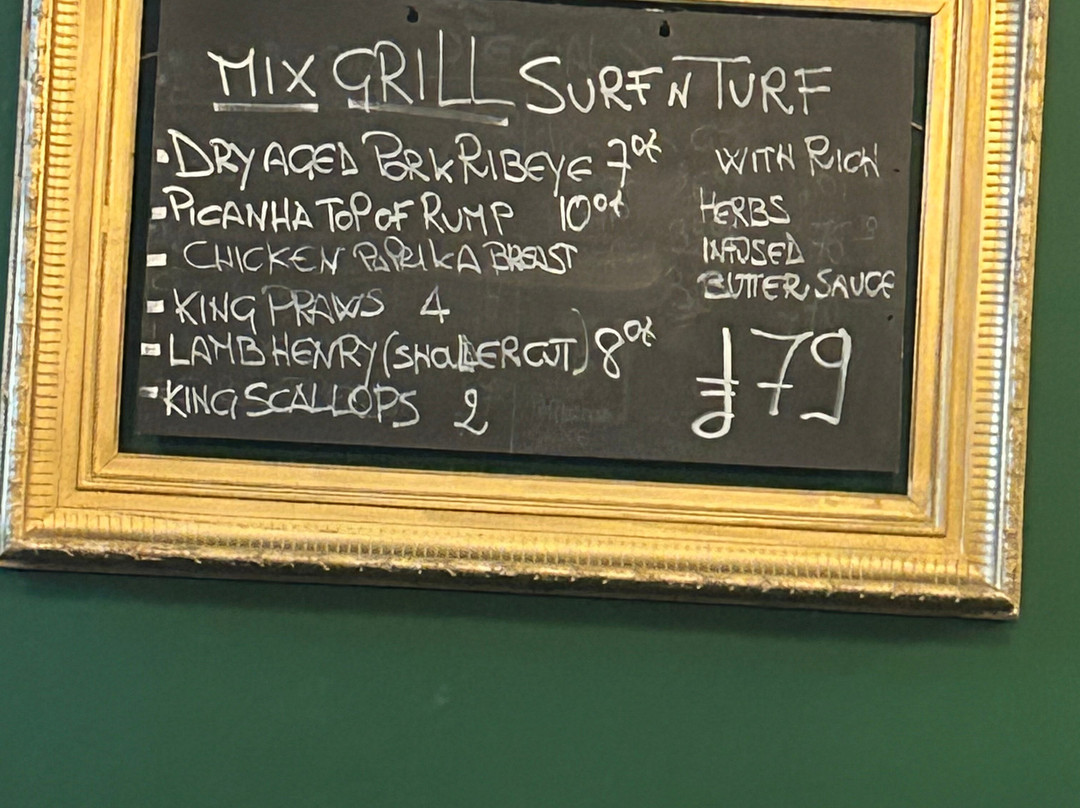 MIX GRILL SURF N TURF
• DRY AGED PORK RIBEYE 7oz
- PICANHA TOP OF RUMP 10oz
- CHICKEN PAPRIKA BREAST
- KING PRAWS 4
- LAMB HENRY (SHOLLER CUT) 8oz
- KING SCALLOPS 2
WITH RICH
HERBS
INFUSED
BUTTER SAUCE
£79